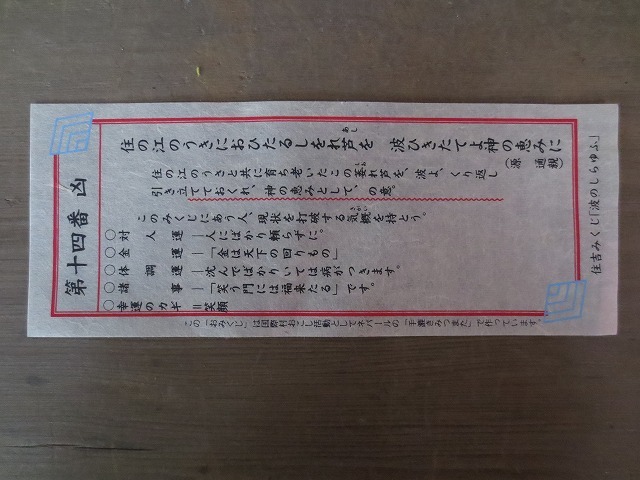 住吉みくじ「波のしらゆふ」
第十四番 凶
住の江のうきにおひたるしをれ芦を 波ひきたてよ神の恵みに
あし
（源 通親）
住の江のうきと共に育ち老いたこの萎れ芦を、波よ、くり返し
しお
引き立てておくれ、神の恵みとして、の意。
このみくじにあう人、現状を打破する気概を持とう。
きがい
○対人運―人にばかり頼らずに。
○金運―「金は天下の回りもの」
○体調運―沈んでばかりいては病がつきます。
○諸事―「笑う門には福来たる」です。
○幸運のカギ＝笑顔
この「おみくじ」は国際村おこし活動としてネパールの「手漉きみつまた」で作っています。